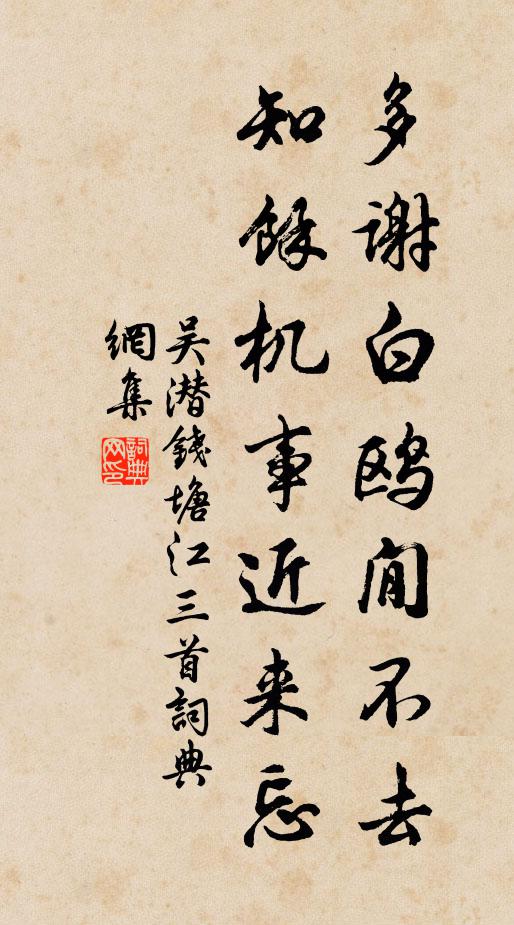 多谢白鸥闲不去
知馀机事近来忘
吴潜錢塘江三首詞典
網集
詞典网印